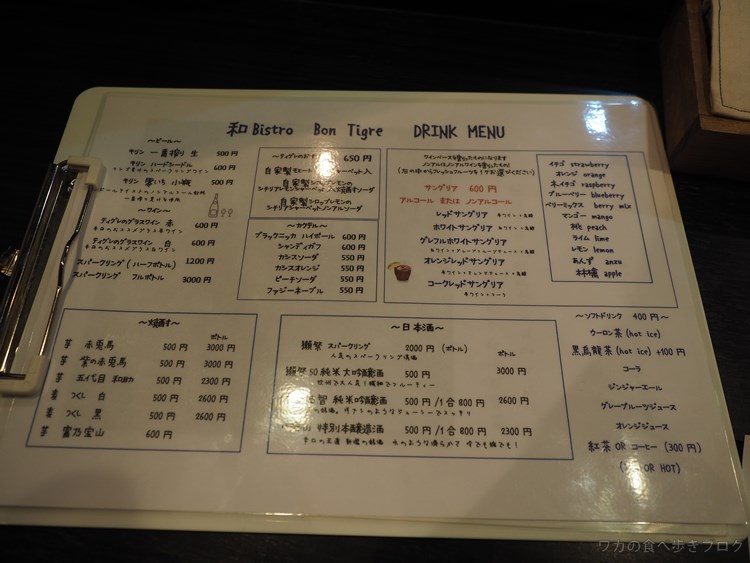 和 Bistro Bon Tigre DRINK MENU
~ビール~
キリン 一番搾り 生 500円
キリン ハードシードル 600円
キリン 零いち 小瓶 500円
~ワイン~
ティグレのグラスワイン 赤 600円
ティグレのグラスワイン 白 600円
スパークリング (ハーフボトル) 1200円
スパークリング フルボトル 3000円
650円
自家製
自家製シロップレモンの
シチリアレモンシャーベット入り
自家製シロップレモンの
シチリアレモンシャーベットノンアルソーダ
~カクテル~
ブラックニッカ ハイボール 600円
シャンディガフ 600円
カシスソーダ 550円
カシスオレンジ 550円
ピーチソーダ 550円
ファジーネーブル 550円
(右の中からフレッシュフルーツを1ケお選びください)
サングリア 600円
アルコール または ノンアルコール
レッドサングリア
ホワイトサングリア
グレフルホワイトサングリア
オレンジレッドサングリア
コークレッドサングリア
イチゴ strawberry
オレンジ orange
木イチゴ raspberry
ブルーベリー blueberry
ベリーミックス berry mix
マンゴー mango
桃 peach
ライム lime
レモン lemon
あんず anzu
林檎 apple
~焼酎~
ボトル
芋 赤兎馬 500円 3000円
芋 紫の赤兎馬 500円 3000円
芋 五代目 和助 500円 2300円
麦 つくし 白 500円 2600円
麦 つくし 黒 500円 2600円
芋 富乃宝山 600円
~日本酒~
獺祭 スパークリング 2000円 (ボトル)
人気のスパークリング清酒
ボトル
獺祭50 純米大吟醸酒 500円 3000円
純米吟醸酒 500円/1合 800円 2600円
特別本醸造酒 500円/1合 800円 2300円
~ソフトドリンク 400円~
ウーロン茶 (hot ice)
黒烏龍茶 (hot ice) +100円
コーラ
ジンジャーエール
グレープフルーツジュース
オレンジジュース
紅茶 OR コーヒー (300円)
OR HOT)
ワカの食べ歩きブログ